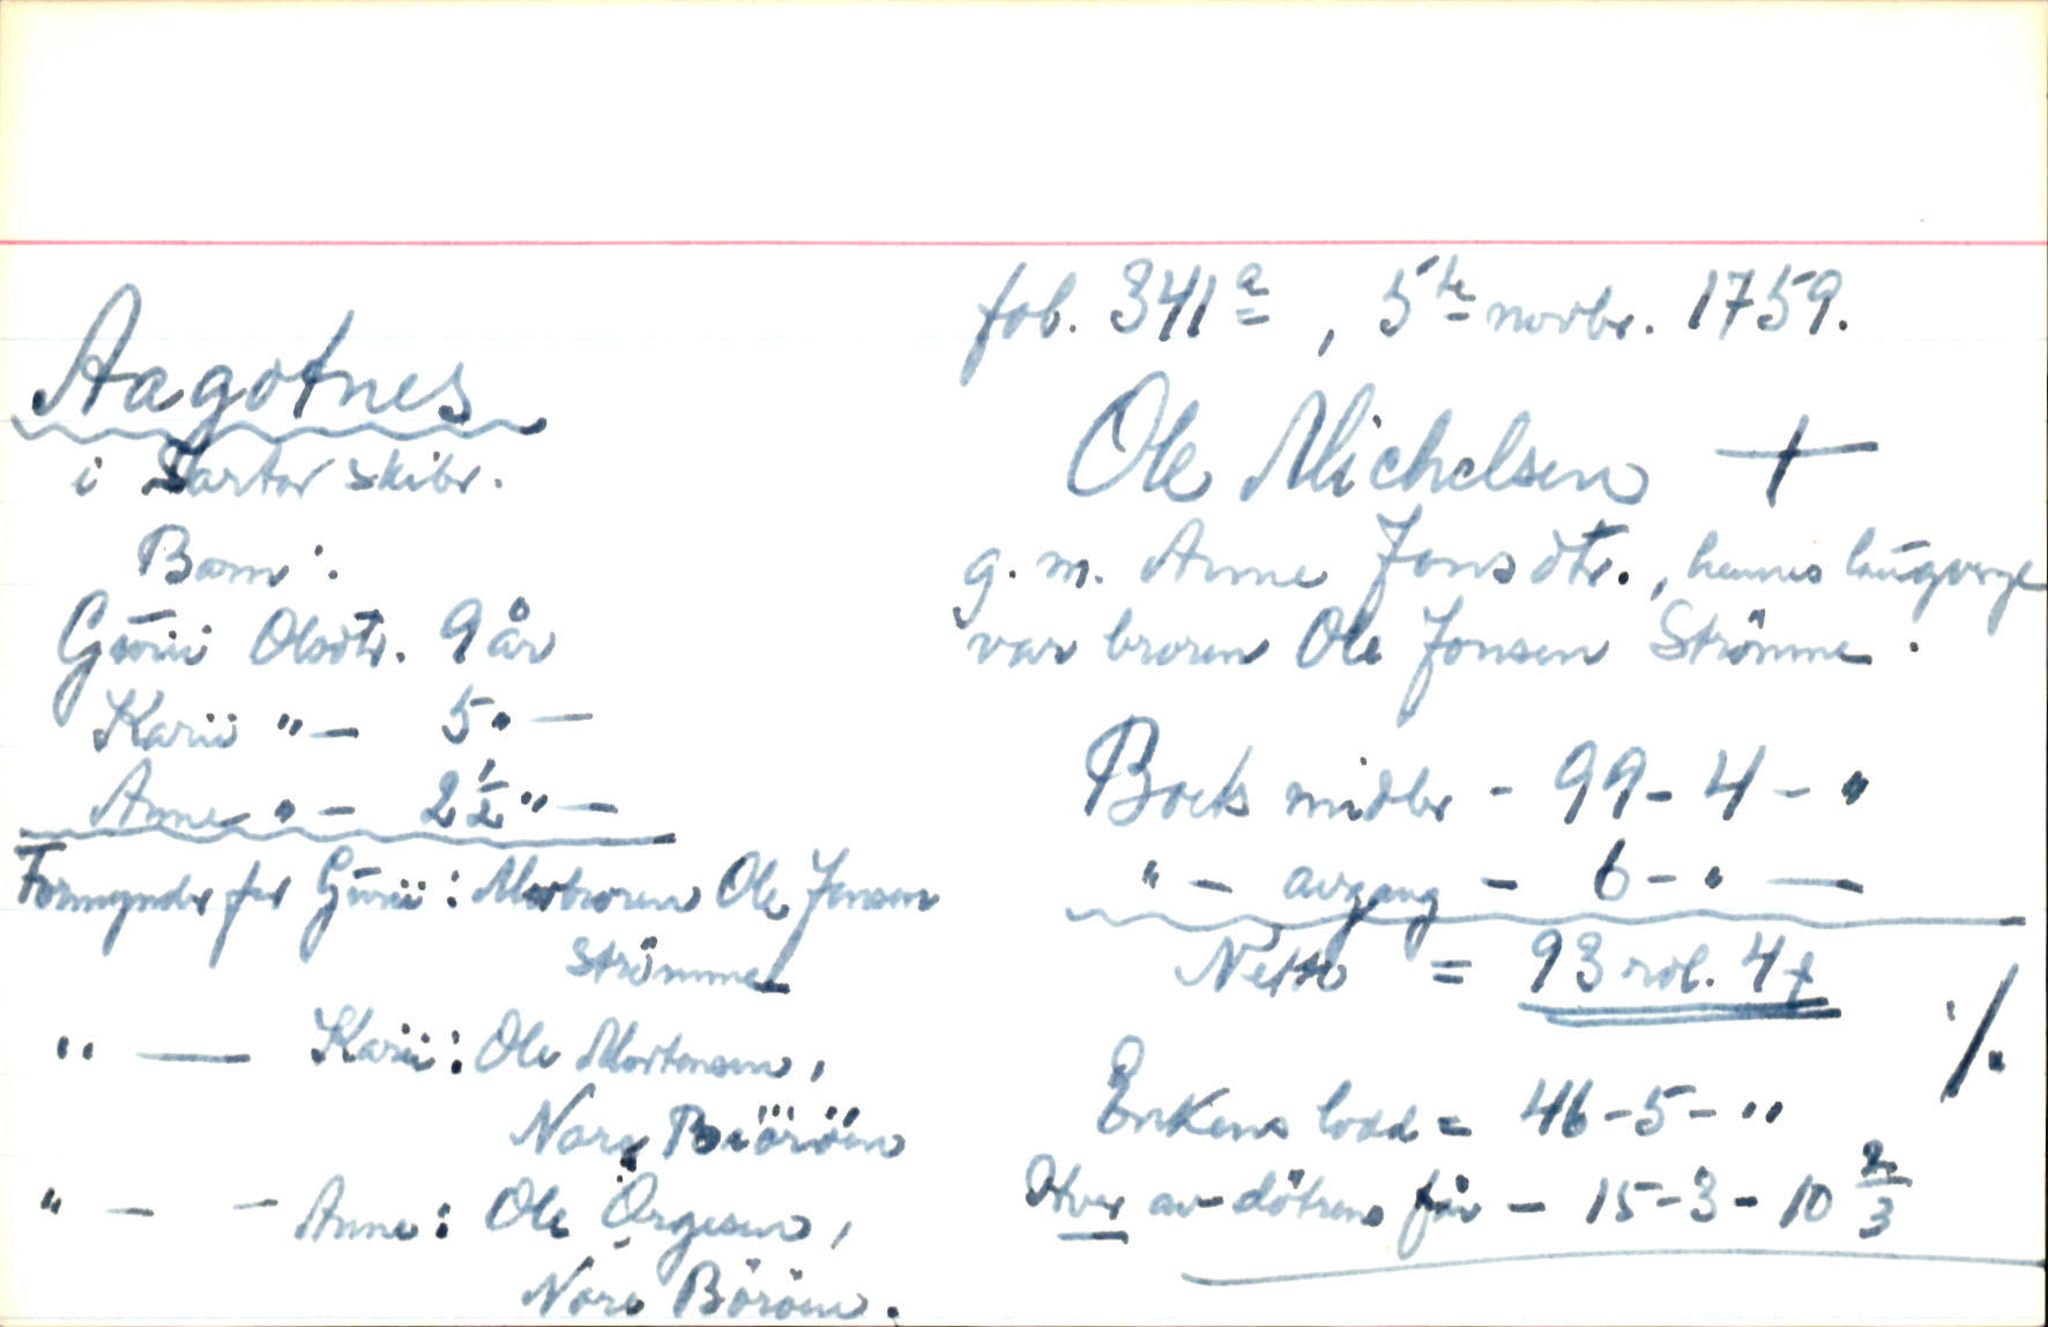 fol. 341a, 5te novbr. 1759.
Aagotnes
i Sartor skibr.
Barn:
Gurii Olsdtr. 9 år
Karii " — 5 " —
Anne " — 2 1/2 " —
Formynder for Gurii: Morbroren Ole Jonsen
Strömme
" — Karii: Ole Mortensen,
Nore Biöröen
" — — Anne: Ole Örgesen,
Nore Böröen.
Ole Michelsen +
g. m. Anne Jonsdtr., hennes laugverge
var broren Ole Jonsen Strömme.
Boets midler - 99 - 4 - "
" — avgang — 6 - " —
Netto = 93 rdl. 4
Enkens lodd = 46 - 5 - "
Hver av dötrene får — 15 - 3 - 10 2/3
·/.